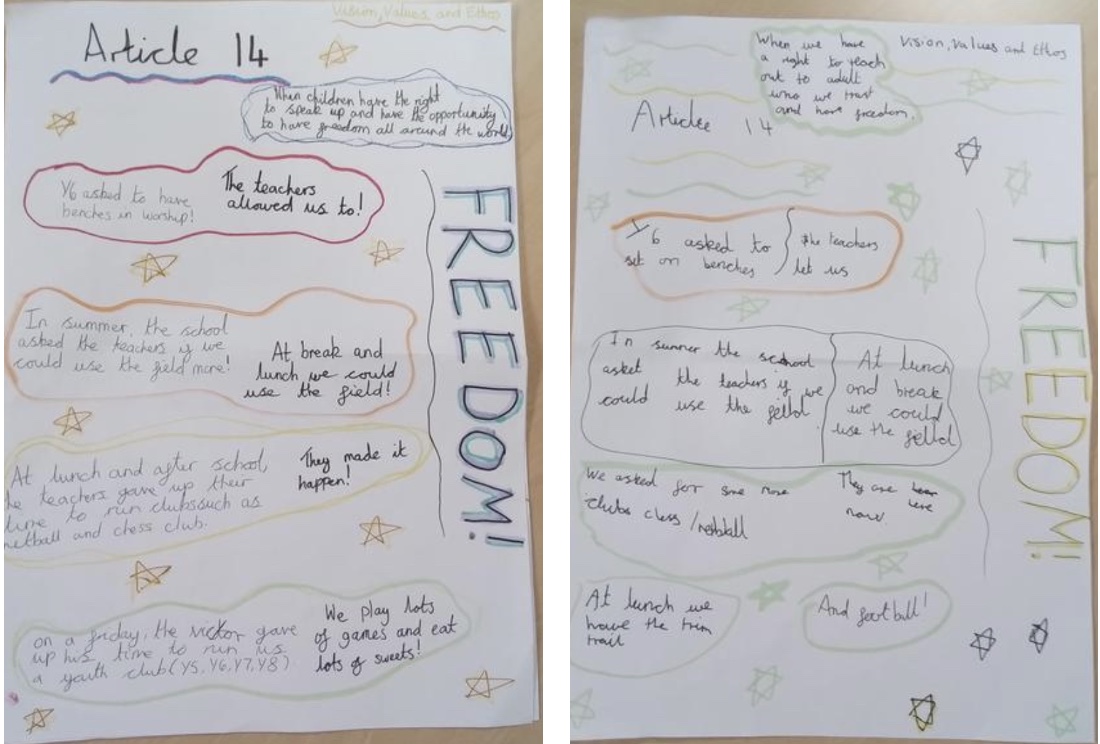 Vision, Values and Ethos
Article 14
When children have the right
to speak up and have the opportunity
to have freedom all around the world
Y6 asked to have
benches in worship!
The teachers
allowed us to!
In summer, the school
asked the teachers if we
could use the field more!
At break and
lunch we could
use the field!
At lunch and after school,
he teachers gave up their
time to run clubs such as
netball and chess club.
They made it
happen!
on a friday, the victor gave
up his time to run us
a youth club (Y5, Y6, Y7, Y8)
We play lots
of games and eat
lots of sweets!
FREEDOM!
When we have
a right to reach
out to adult
who we trust
and have freedom.
Vision, Values and Ethos
Article 14
Y6 asked to
set on benches
the teachers
let us
In summer the school
asket the teachers if we
could use the feild.
At lunch
and break
we could
use the feild
We asked for some more
clubs chess / netball
They are
here
now
At lunch we
have the trim
trail
And football!
FREEDOM!